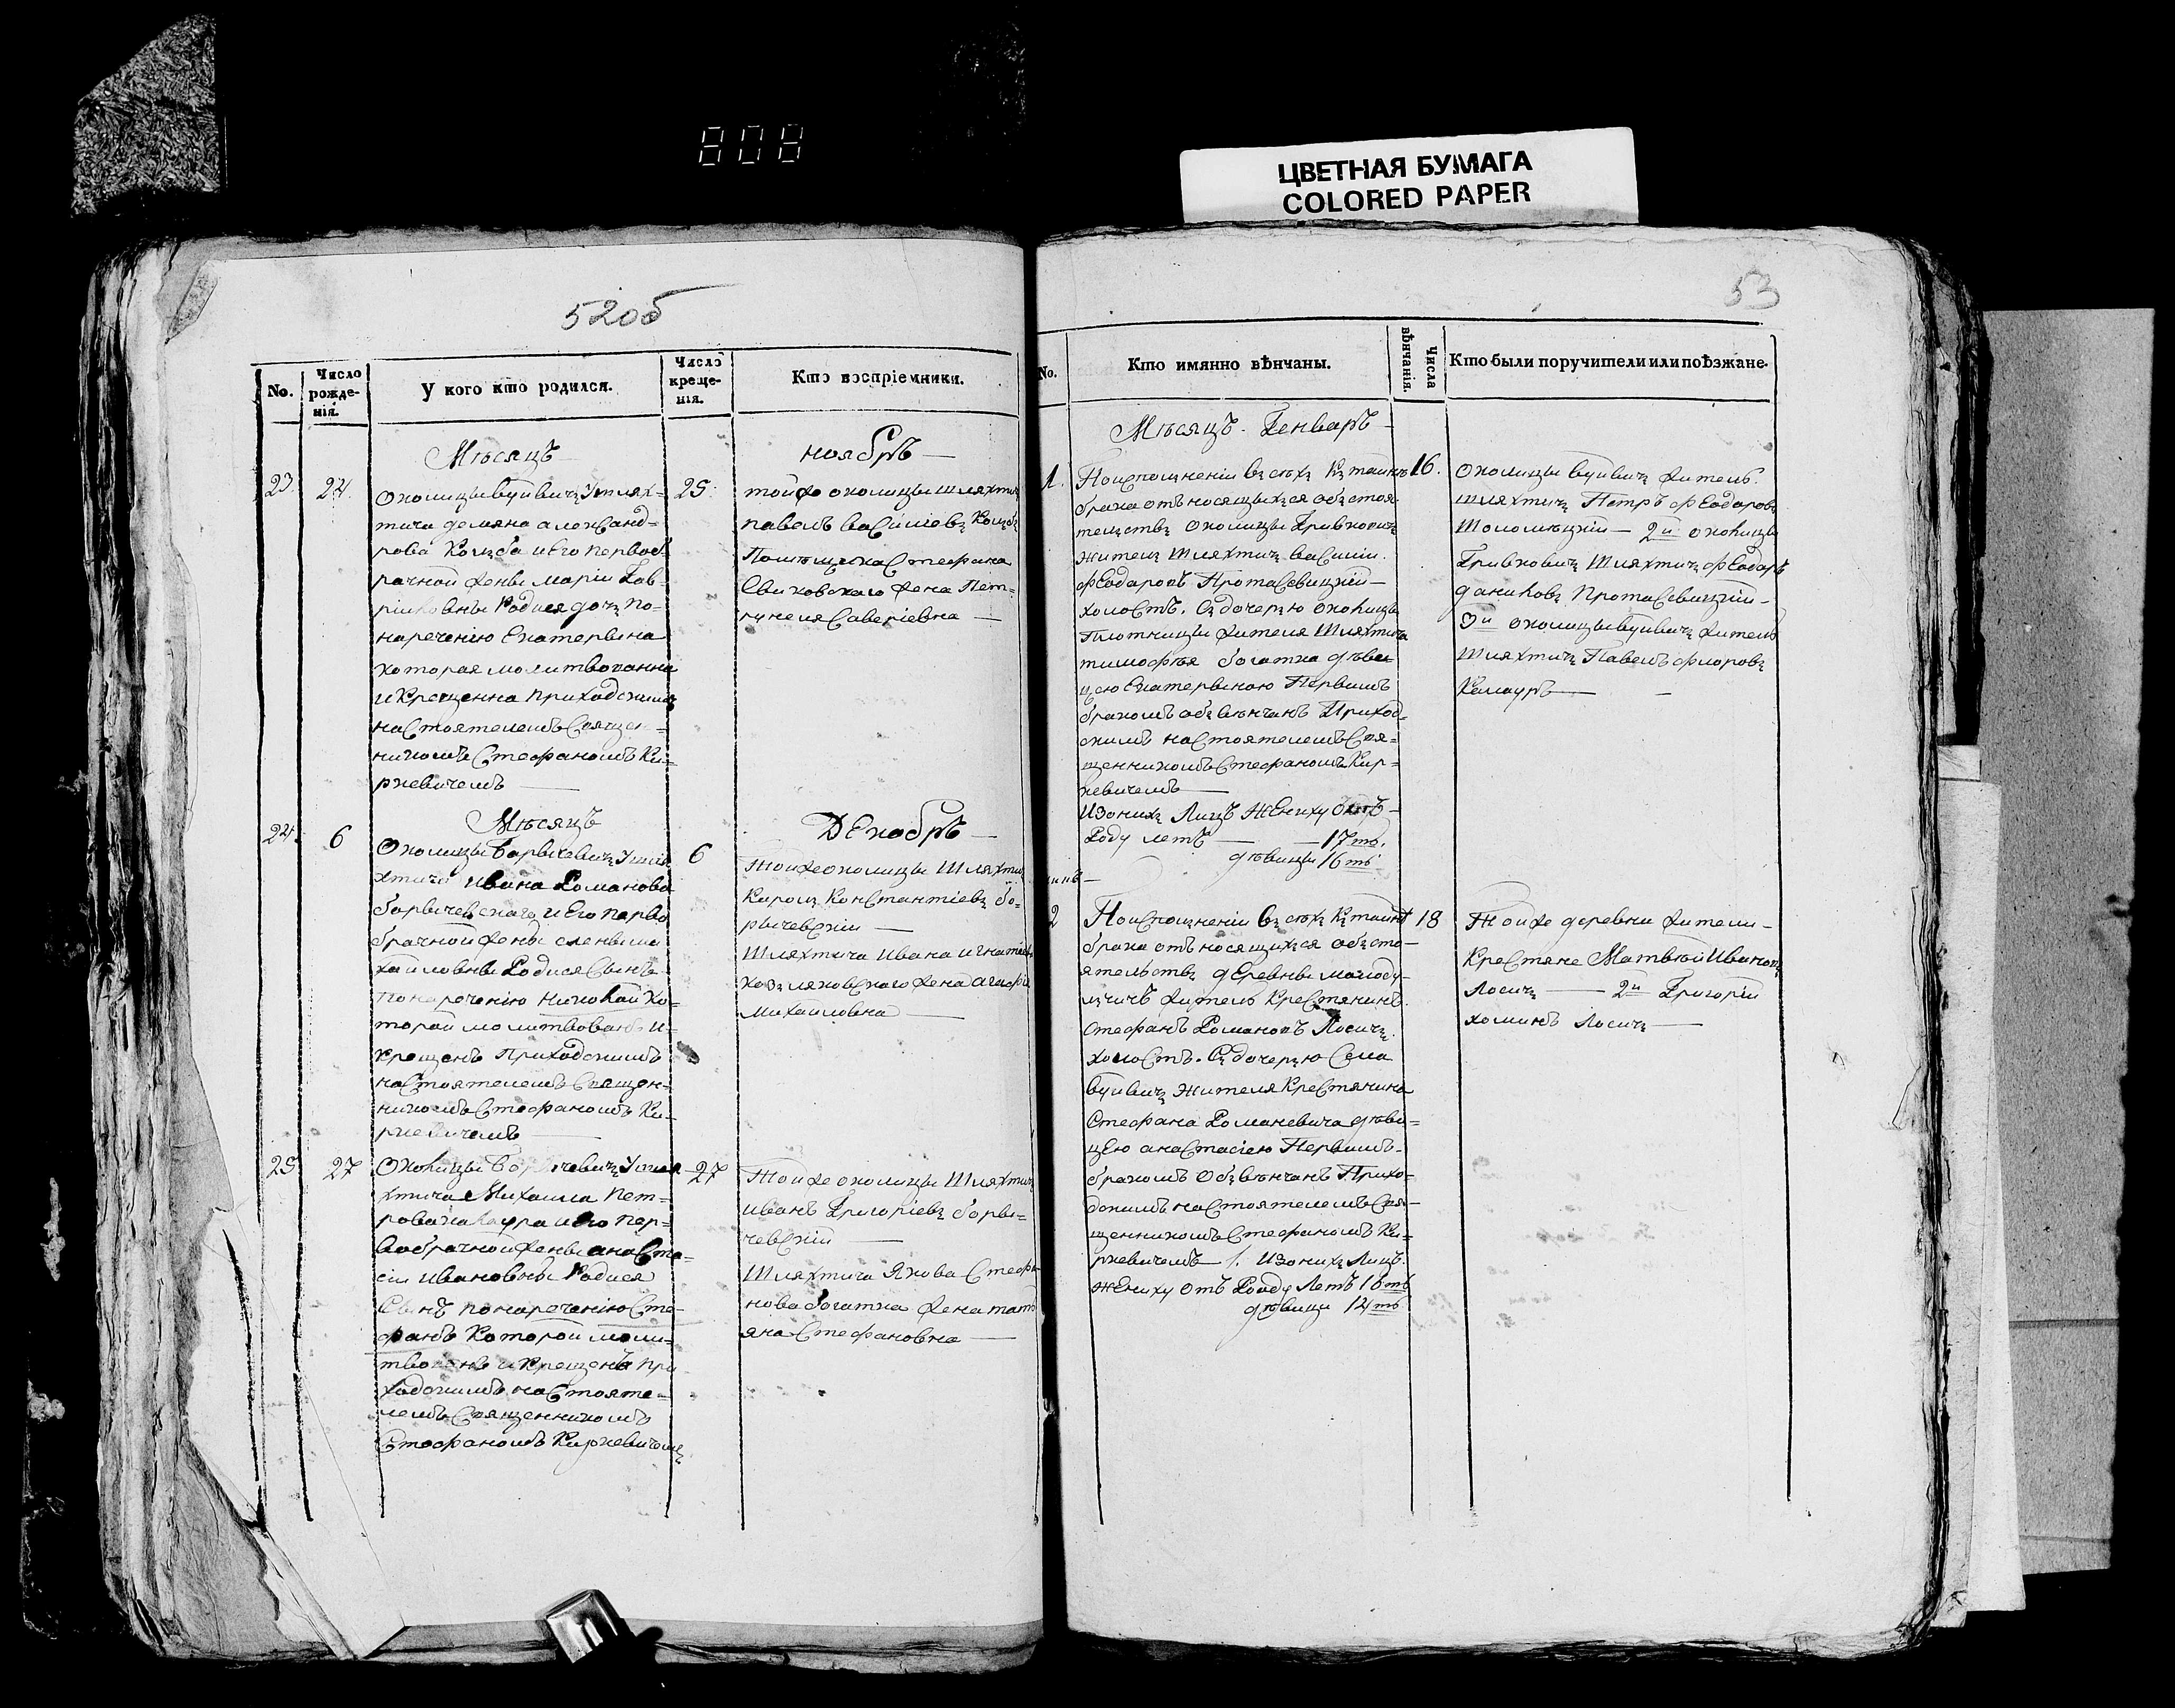 808
ЦВЕТНАЯ БУМАГА
COLORED PAPER
52об
No.
Число рожденія.
У кого кто родился.
Число крещенія.
Кто воспріемники.
Мѣсяцъ
ноябрь
23.
24.
25.
околицы вуивичъ У шлях-
тича демяна александ-
рова Колцба и Его первоб
рачной жены маріи Гав-
ріиловны Родися дочь по-
наречению Екатерына
которая молитвованна
и Крещенна приходским
настоятелемъ Священ-
никомъ Стефаномъ Ки-
ркевичемъ
тойже околицы шляхтич
павелъ василіевъ
Помѣщика Стефана
жена Пет-
рунеля Саверіевна
Мѣсяцъ
ДЕкабрь
24.
6
6
Околицы Барычевичъ У шля
хтича Ивана Романова
барычевскаго и Его перво
брачной жены елены ми
хайловны Родися Сынъ
по наречению николай ко-
торой молитвованъ и-
Крещенъ Приходскимъ
настоятелемъ Священ-
никомъ Стефаномъ Ки-
ркевичемъ
Тойже околицы Шляхтич
Кароль Константіевъ бо-
рычевскій
Шляхтича Ивана игнатіев
жена агафія
михаиловна
25
27
27
Околицы У шля
хтича Михаила Пет-
рова и Его пер-
вобрачной жены анаста-
сіи ивановны Родися
Сынъ по наречению Сте-
фанъ Которой моли-
твованъ и Крещенъ при
ходскимъ настояте-
лемъ Священникомъ
Стефаномъ Киркевичемъ
Тойже околицы Шляхтич
иванъ Григоріевъ боры-
чевскій
Шляхтича Якова Стефа
нова богатка жена тать
яна Стефановна
53
No.
Кто имянно вѣнчаны.
Числа вѣнчанія.
Кто были поручители или поѣзжане.
Мѣсяцъ. Генварь
1.
16.
Поисполненіи всѣхъ Къ таинст
брака относящыхся обстоя
тельствъ околицы Гривковичъ
житель шляхтичъ василіи.
фЕодаровъ Протасевицкій
холостъ. Съ дочерью околицы
Плотницы жителя Шляхтича
тимофея богатка дѣви
цею Екатерыною Первымъ
бракомъ обвѣнчанъ Приход-
скимъ настоятелемъ Свя-
щенникомъ Стефаномъ Кир-
кевичемъ
Изоныхъ Лицъ ЖЕниху отъ
Роду летъ 17тъ.
дѣвицы 16тъ
околицы вуивичъ житель.
шляхтичъ Петръ фЕодаровъ
2й околицы
Гривковичъ Шляхтичъ фЕодаръ
даниловъ Протасевицкій
3й околицы вуивичъ житель
шляхтичъ Павелъ флоровъ
2
18
Поисполненіи всѣхъ Къ таинст
брака относящихся обсто-
ятельствъ дЕревны малоду-
ичъ житель Крестянинъ.
Стефанъ Романовъ Лосичъ.
холостъ. Съ дочерью Села
вуивичъ Жителя Крестянина
Стефана Романевича дѣви-
цЕю анастасіею Первымъ
бракомъ обвѣнчанъ Прихо-
дскимъ настоятелемъ Свя-
щенникомъ Стефаномъ Ки-
ркевичемъ 1. Изоныхъ Лицъ.
жЕниху отъ Роду Летъ 18тъ
дѣвицы
Тойже деревни жители
Крестяне Матвѣй Ивановъ
Лосичъ 2й Григорій
хоминъ Лосичъ